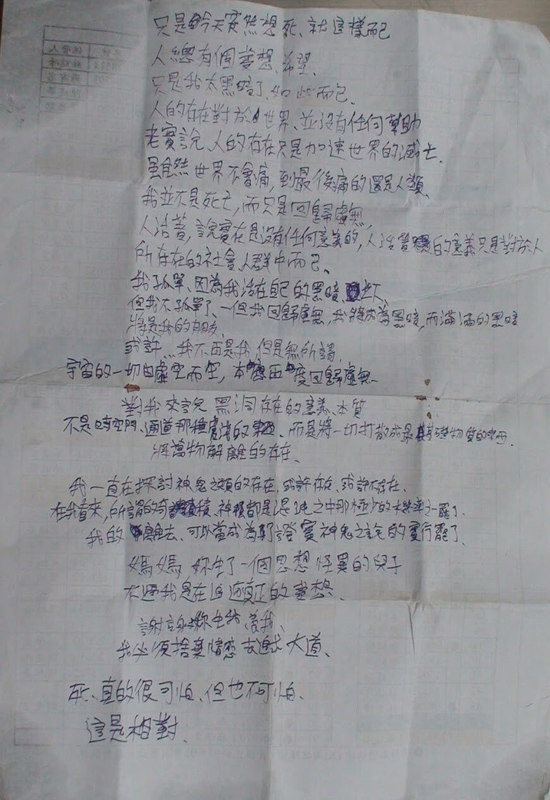 只是今天突然想死、就這樣而已
人總有個夢想、希望、
只是我太黑暗了、如此而已、
人的存在對於世界、並沒有任何幫助
老實說、人的存在只是加速世界的滅亡、
雖然世界不會痛,到最後痛的還是人類
我並不是死亡,而只是回歸虛無、
人活著,說實在是沒有任何意義的,人活著的意義只是對於人
所存在的社會人群中而已、
我孤單、因為我活在自己的黑暗
但我不孤單了、一但我回歸虛無,我將成為黑暗,而滿滿的黑暗
將是我的朋友、
或許 我不再是我 但是無所謂
宇宙的一切由虛空而生,本應回歸虛無
對我來說 黑洞存在的意義、本質
不是時空門、通道那種 的東西 而是將一切打散成最基礎物質的東西
將萬物解離的存在、
我一直在探討神鬼之類的存在,或許存在,或許不存在
在我看來,所謂的奇蹟 都是混沌之中那極少的 率 罷了、
我的 離去、可以當成為了證實神鬼之說的實行罷了
媽媽,妳生了一個思想怪異的兒子
不過我是在追逐真正的夢想、
謝謝妳生我、養我、
我必須捨棄 大道、
死、真的很可怕、但也不可怕、
這是相對